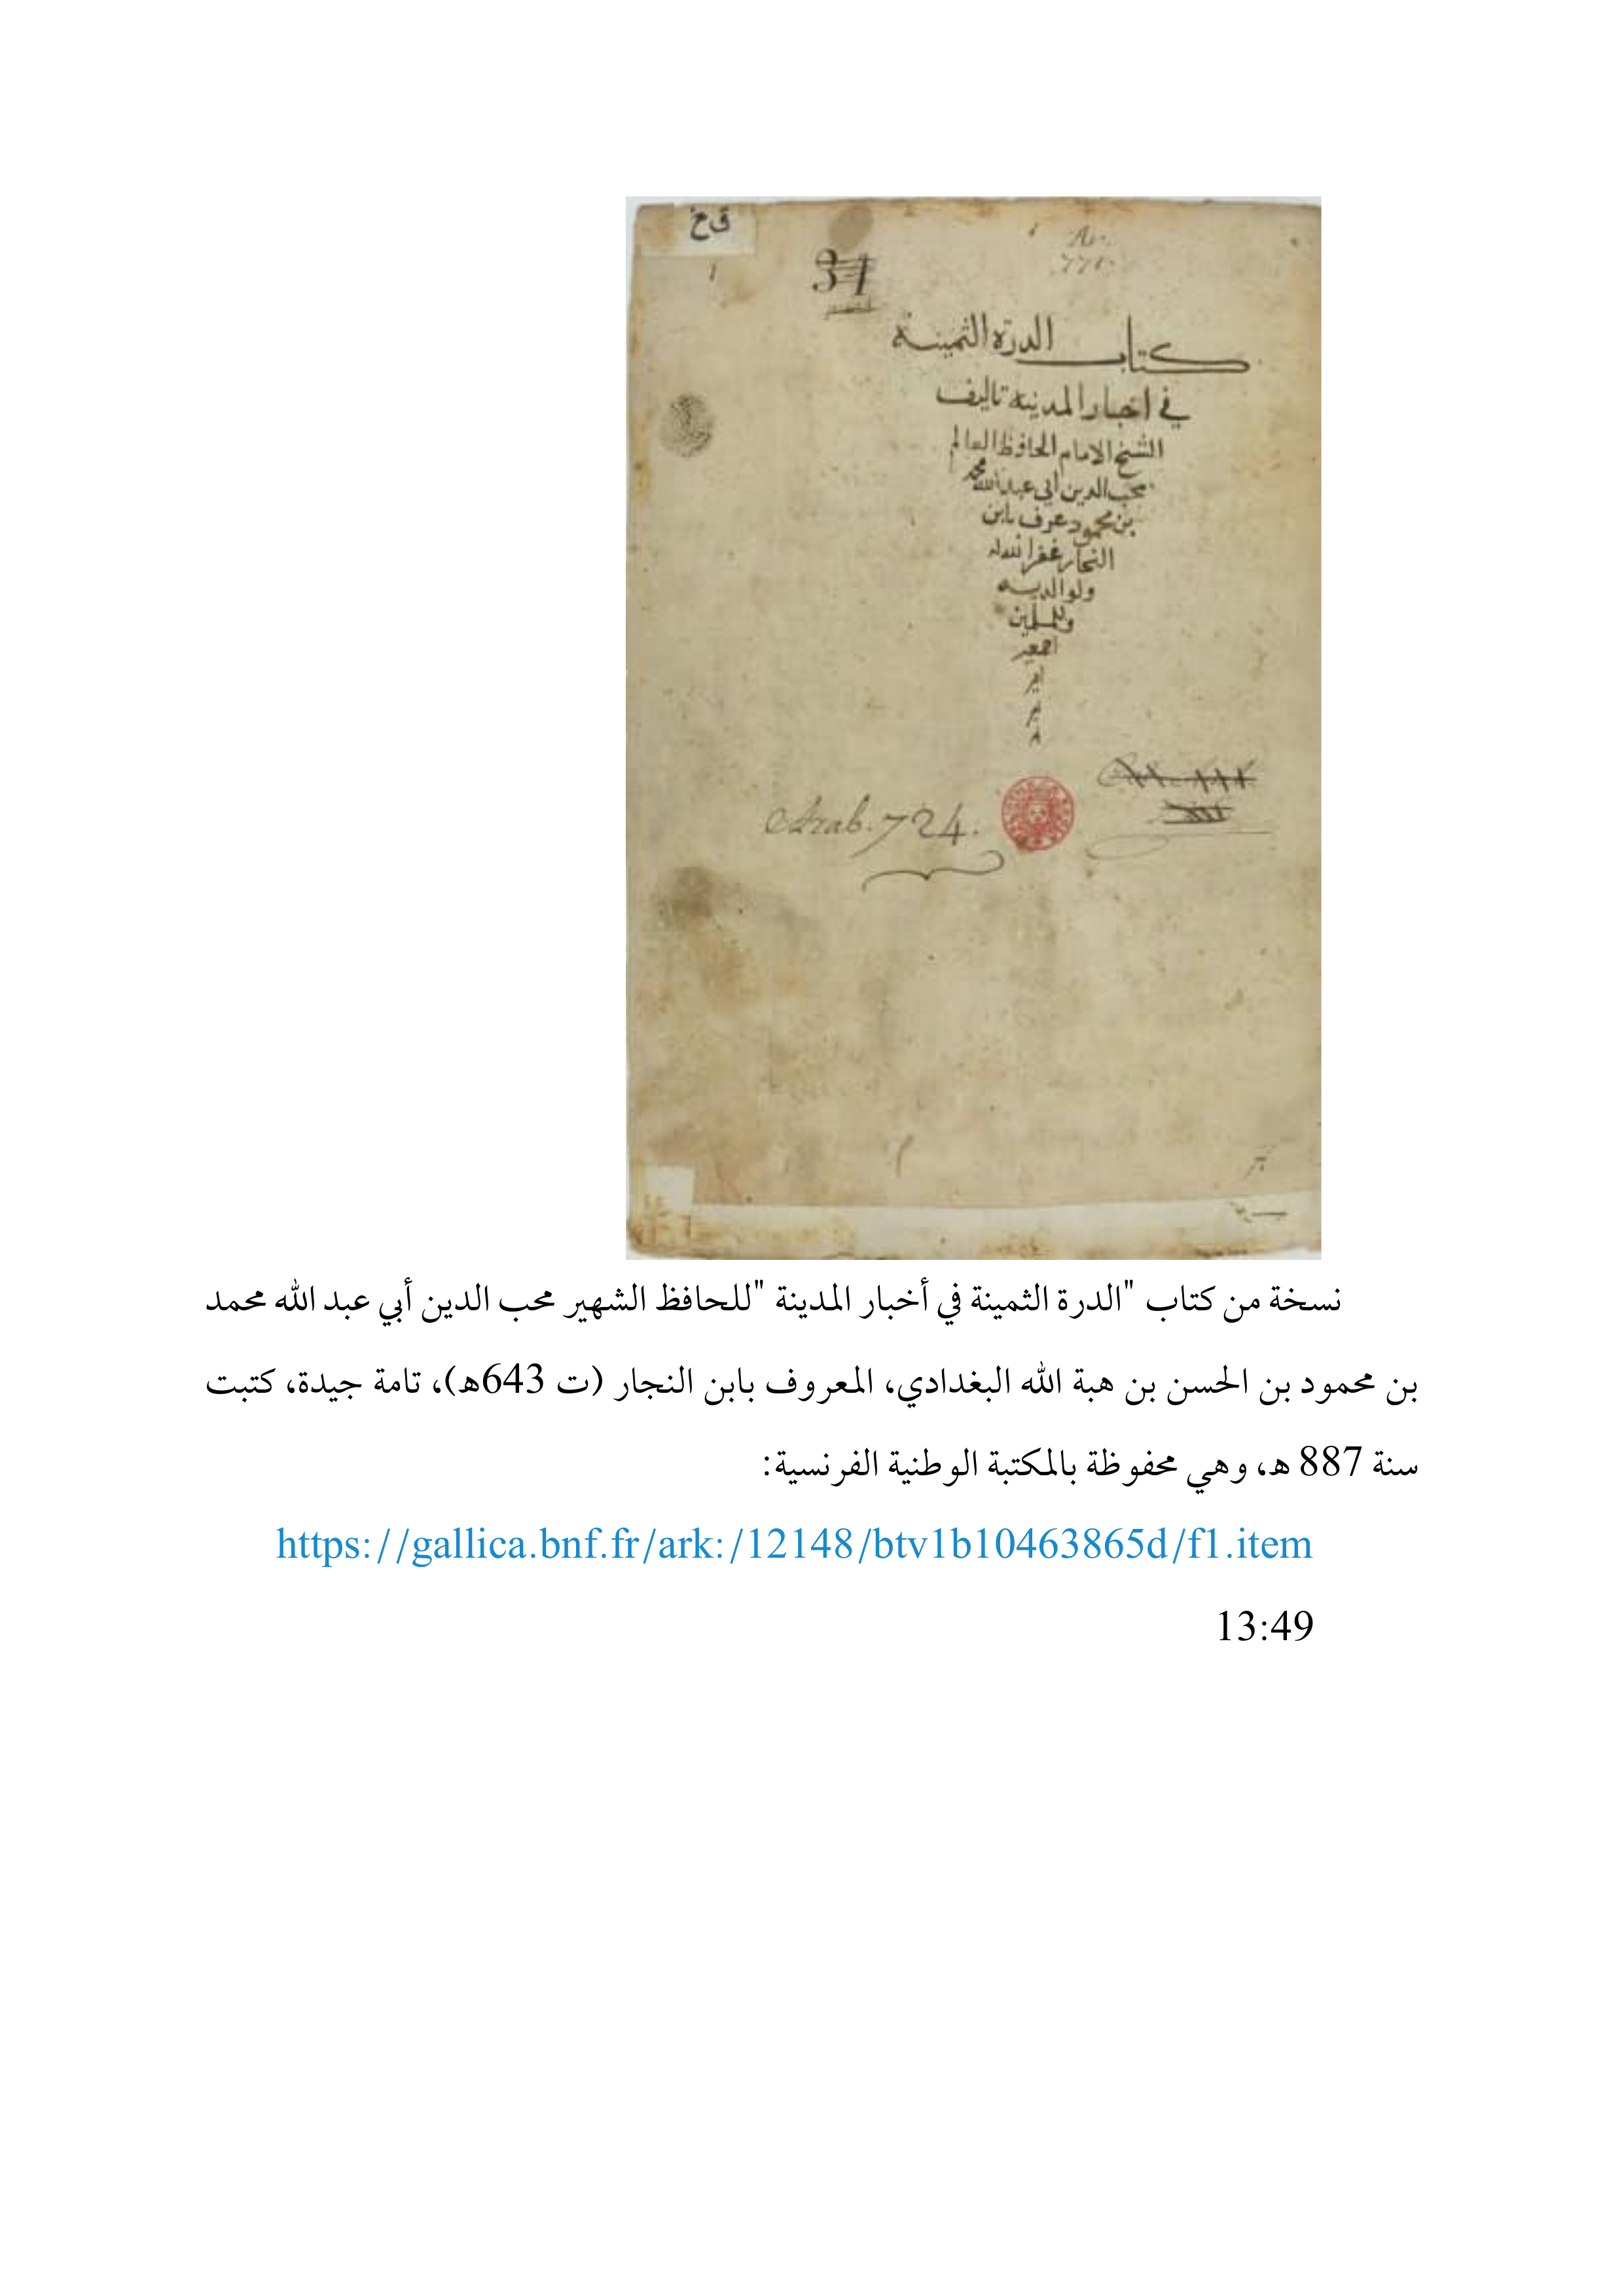 ق خ
34
1
كتاب الدرة الثمينة
في اخبار المدينه تاليف
الشيخ الامام الحافظ العالم
محب الدين ابي عبد الله محمد
بن محمود عرف بابن
النجار غفر الله له
ولوالديه
وللمسلمين
اجمعين
Arab. 724.
نسخة من كتاب "الدرة الثمينة في أخبار المدينة "للحافظ الشهير محب الدين أبي عبد الله محمد
بن محمود بن الحسن بن هبة الله البغدادي، المعروف بابن النجار (ت 643ه)، تامة جيدة، كتبت
سنة 887 ه، وهي محفوظة بالمكتبة الوطنية الفرنسية:
https://gallica.bnf.fr/ark:/12148/btv1b10463865d/f1.item
13:49